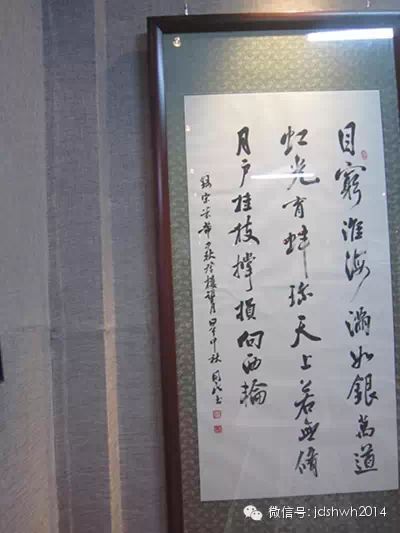 目窮淮海滿如銀萬道
虹光育蚌珎天上若無脩
月戶桂枝撐損向西輪
錄宋米芾中秋登樓望月 中秋
微信号: jdshwh2014